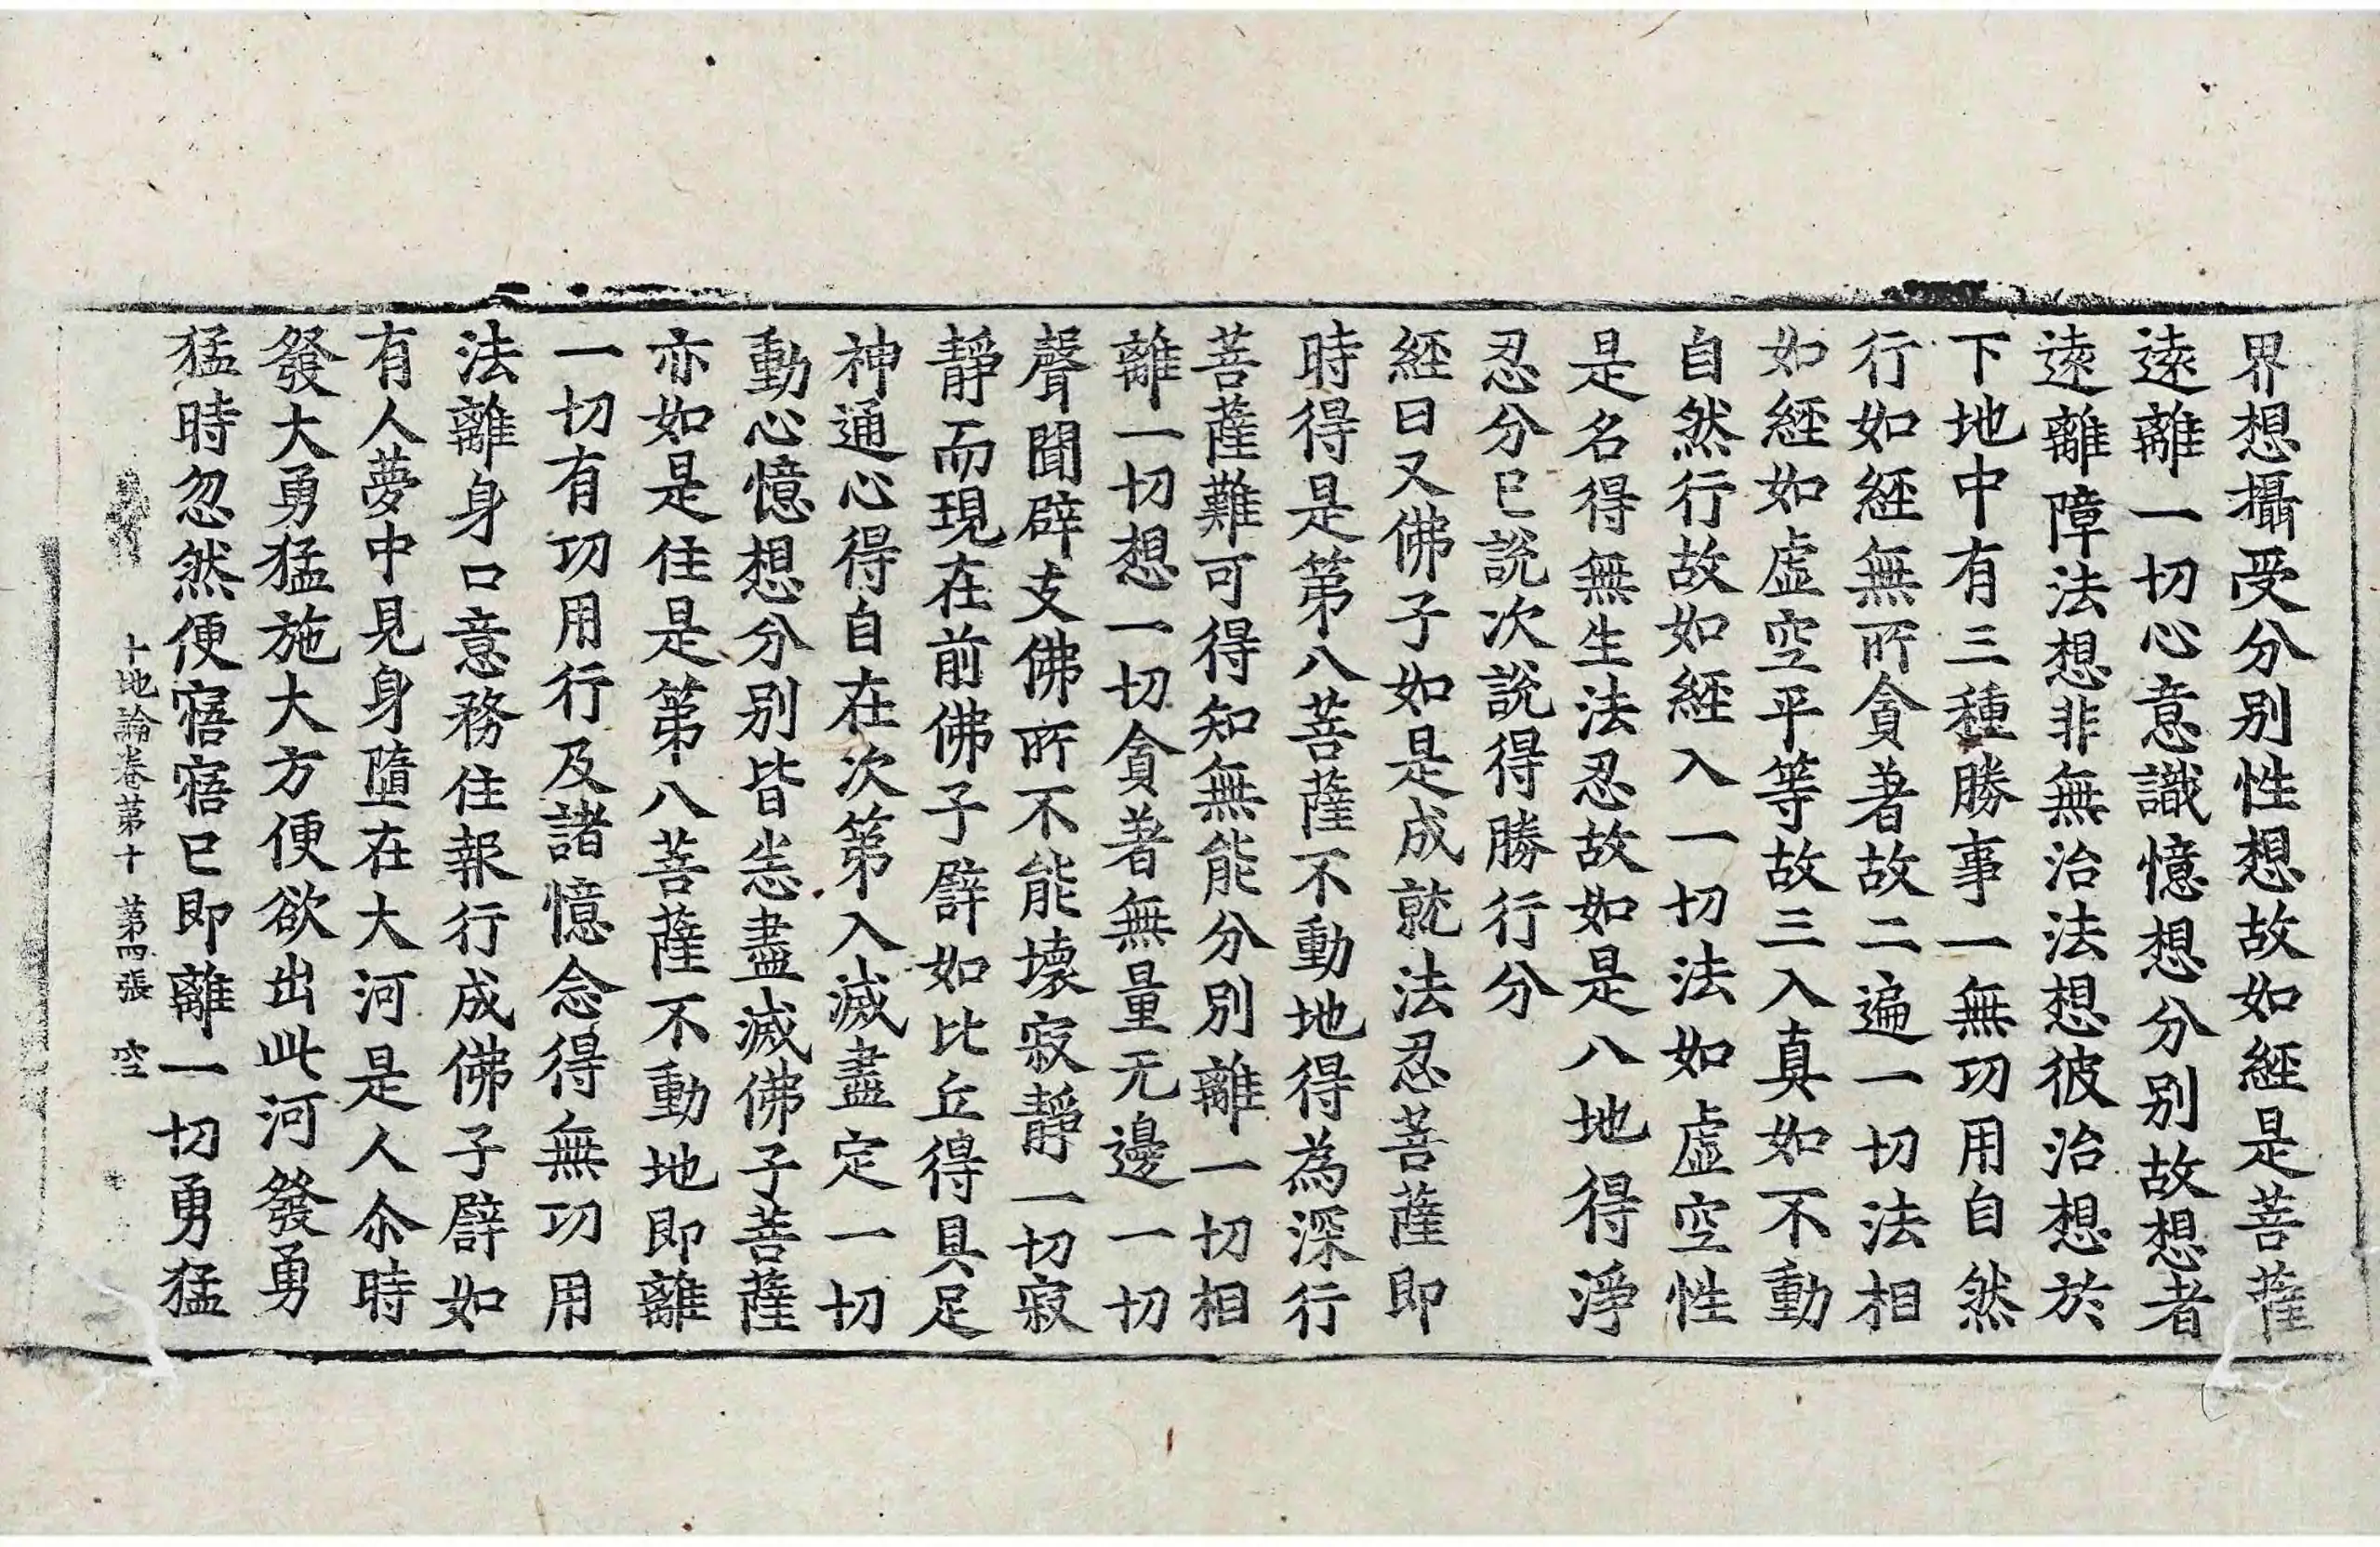 界想攝受分別性想故如經是菩薩
遠離一切心意識憶想分別故想者
遠離障法想非無治法想彼治想於
下地中有三種勝事一無功用自然
行如經無所貪著故二遍一切法相
如經如虛空平等故三入真如不動
自然行故如經入一切法如虛空性
是名得無生法忍故如是八地得淨
忍分已說次說得勝行分
經曰又佛子如是成就法忍菩薩即
時得是第八菩薩不動地得為深行
菩薩難可得知無能分別離一切相
離一切想一切貪著無量无邊一切
聲聞辟支佛所不能壞寂靜一切寂
靜而現在前佛子譬如比丘得具足
神通心得自在次第入滅盡定一切
動心憶想分別皆悉盡滅佛子菩薩
亦如是住是第八菩薩不動地即離
一切有功用行及諸憶念得無功用
法離身口意務住報行成佛子譬如
有人夢中見身墮在大河是人尒時
發大勇猛施大方便欲出此河發勇
猛時忽然便寤寤已即離一切勇猛
十地論卷第十 第四張 空